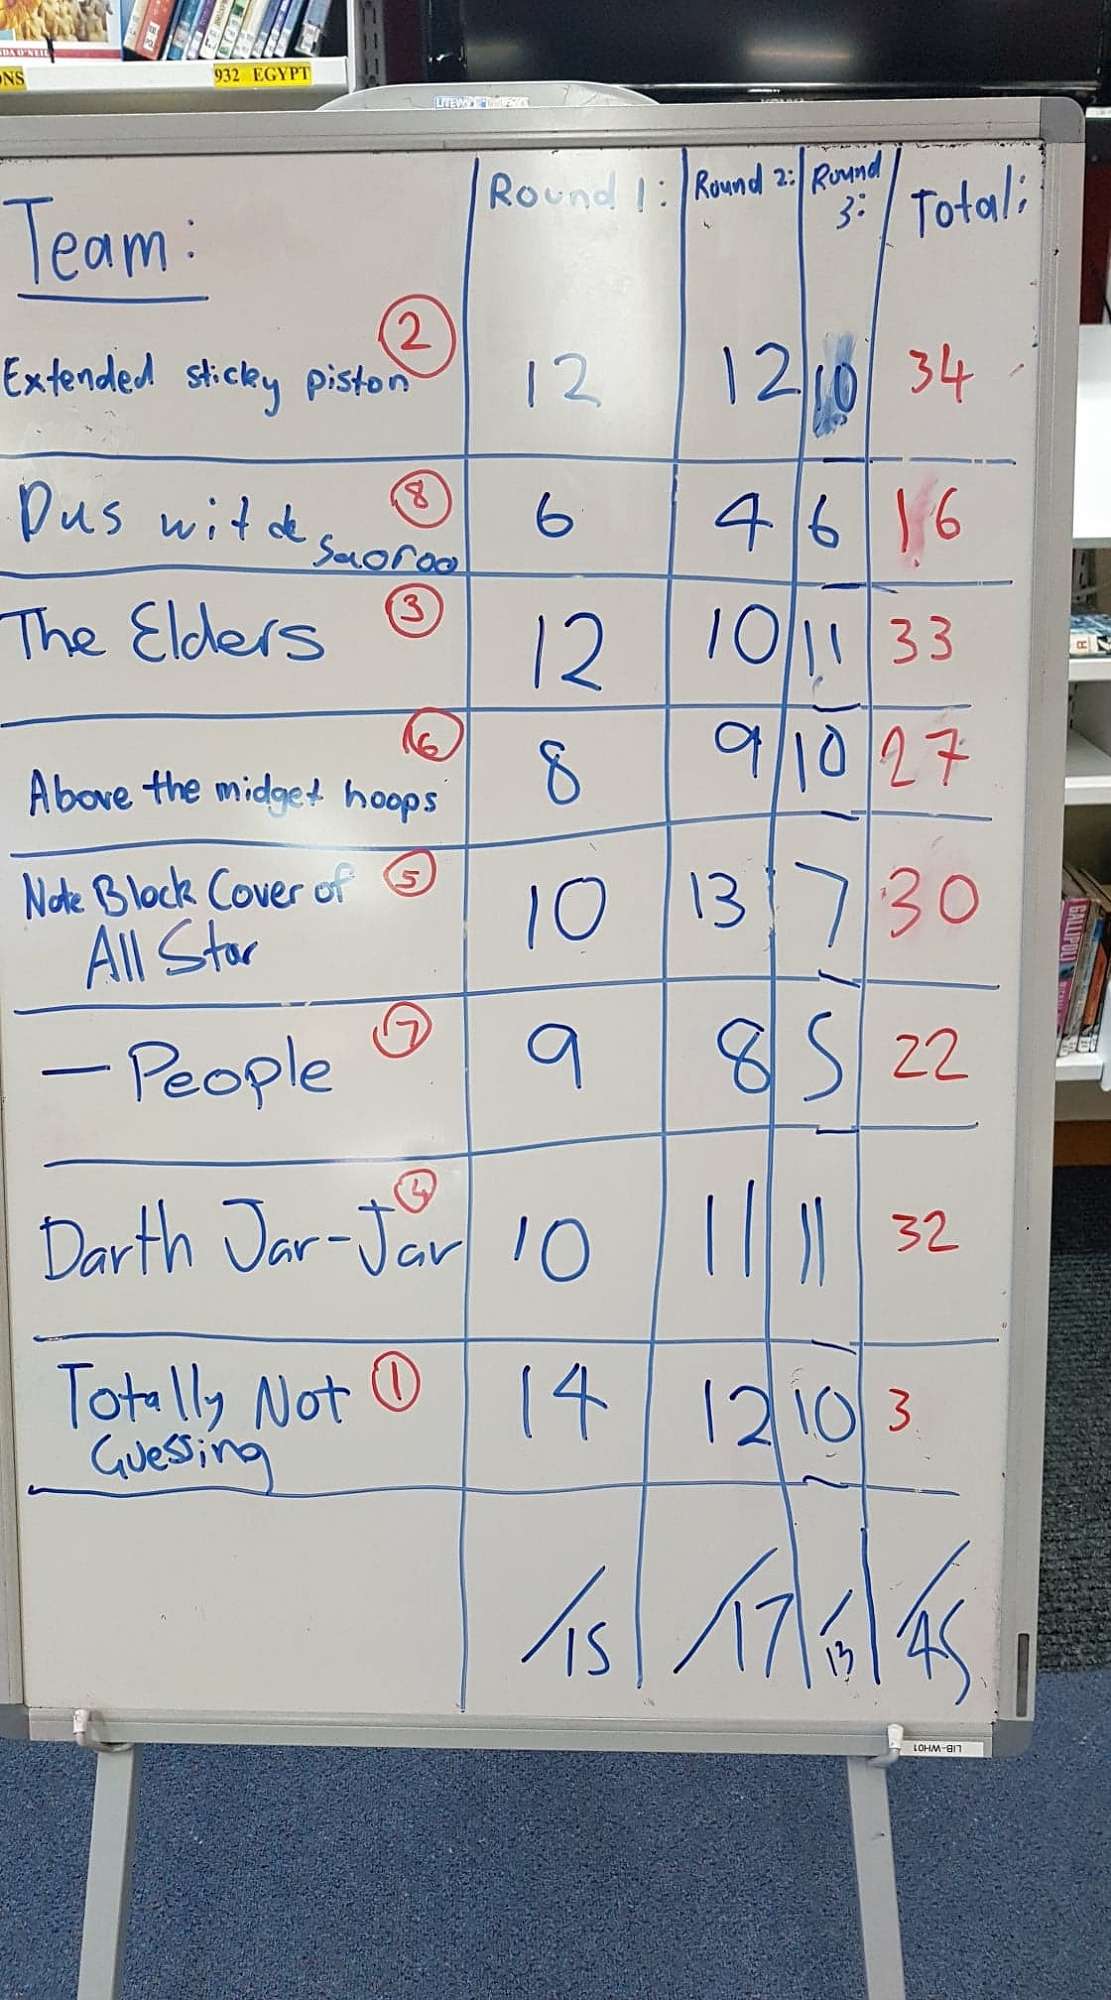 DA O'NEIL
ONS
932 EGYPT
Team:
Round 1:
Round 2:
Round
3:
Total:
Extended sticky piston
2
12
12
10
34
Dus wit de
saoroo
8
6
4
6
16
The Elders
3
12
10
11
33
Above the midget hoops
6
8
9
10
27
Note Block Cover of
All Star
5
10
13
7
30
— People
7
9
8
5
22
Darth Jar-Jar
4
10
11
11
32
Totally Not
Guessing
1
14
12
10
3
/15
/17
/13
/45
GALLIPOLI
R
LIB-WH01